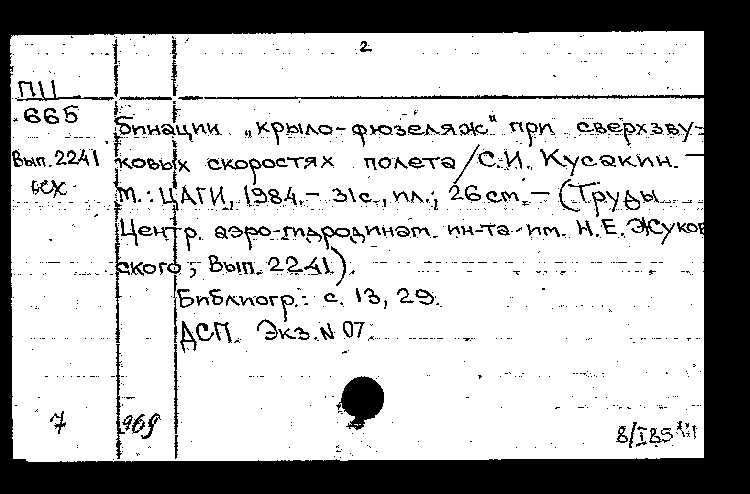 2
П11
665
Вып. 2241
бинации „крыло-фюзеляж" при сверхзву=
ковых скоростях полета / С.И. Кусакин. —
М.: ЦАГИ, 1984. – 31 с., ил.; 26 см. – (Труды
Центр. аэро-гидродинам. ин-та им. Н.Е. Жуков
ского; Вып. 2241).
Библиогр.: с. 13, 29.
ДСП. Экз. N 07.
7
969
8/I85